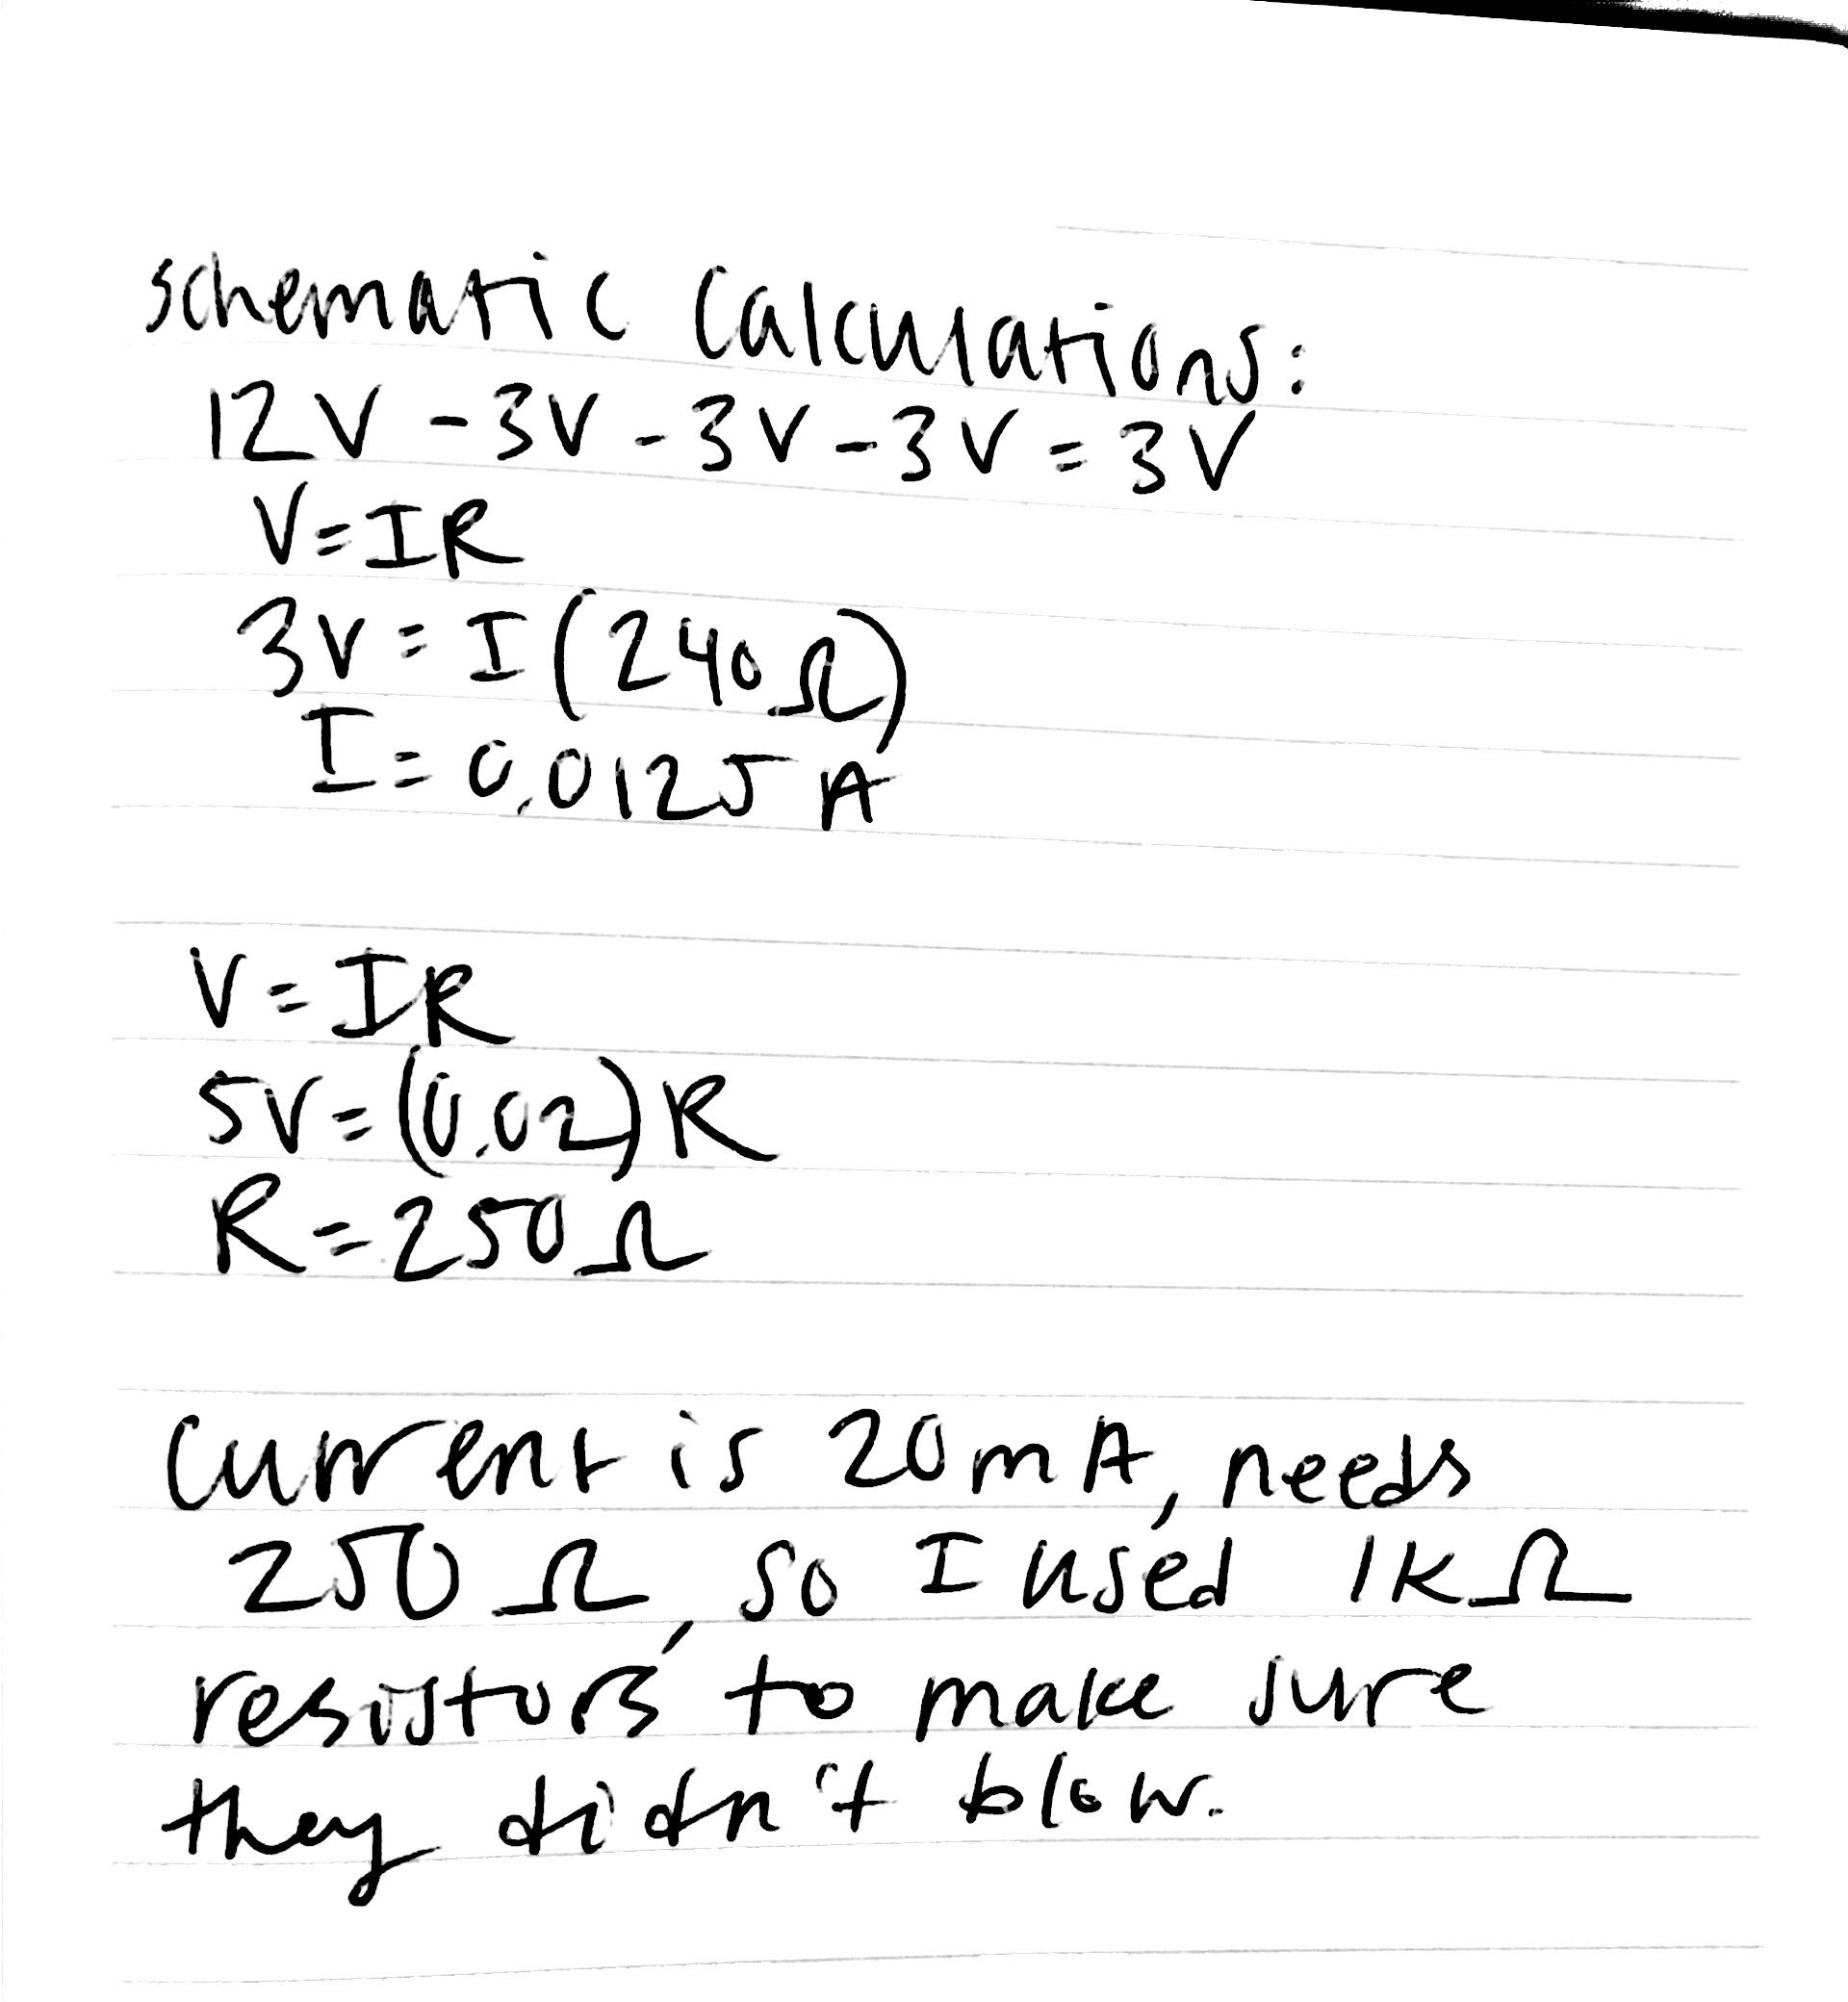 schematic calculations:
12V - 3V - 3V - 3V = 3V
V = IR
3V = I(240Ω)
I = 0.0125 A
V = IR
5V = (0.02)R
R = 250Ω
current is 20mA, needs
250 Ω, so I used 1KΩ
resistors to make sure
they didn't blow.